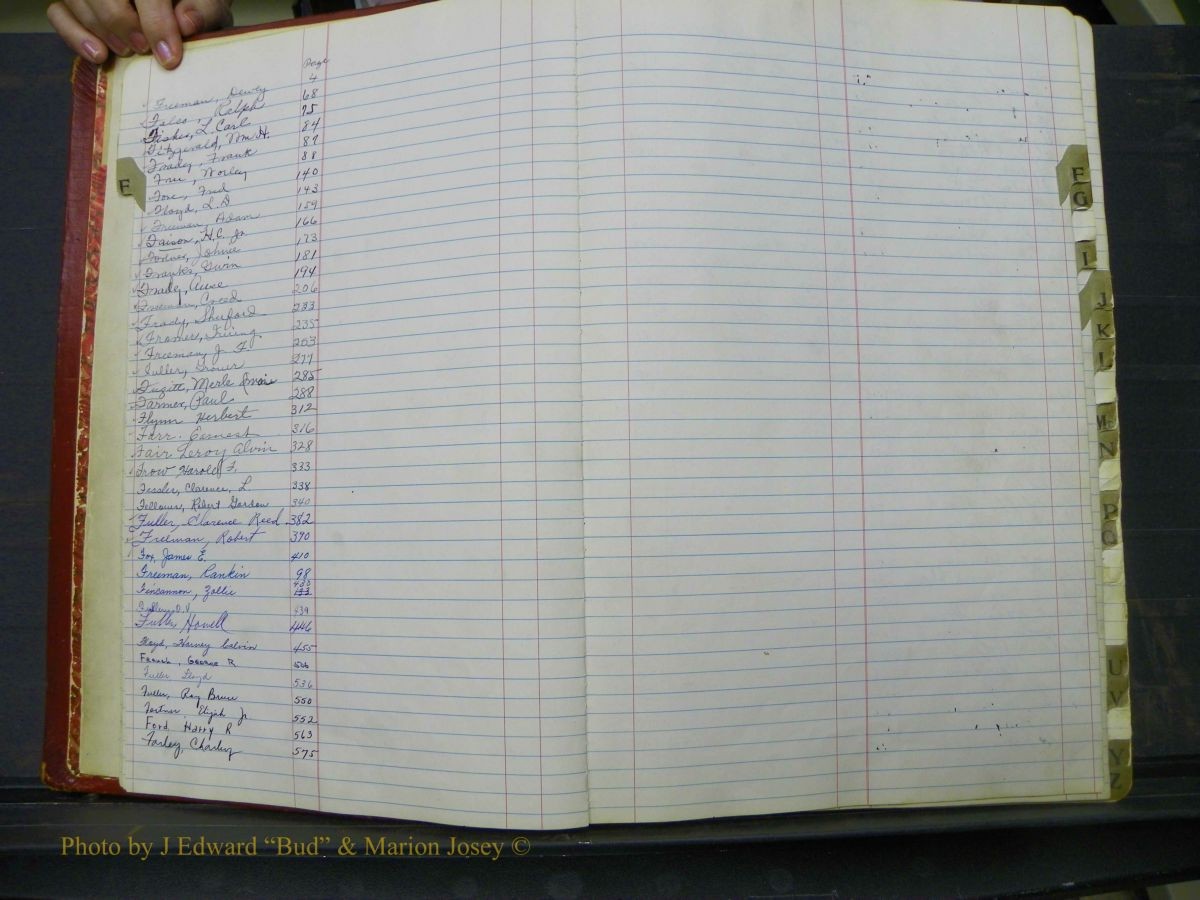 Page
Freeman, Dewey 4
Felso, Ralph 68
Fisher, L. Carl 75
Fitzgerald, Wm. H. 84
Frady, Frank 87
Free, Worley 88
Foxe, Fred 140
Floyd, L. D. 143
Freeman, Adam 159
Faison, H. C. Jr. 166
Fortner, Johnie 173
Franks, Irvin 181
Frady, 194
Freeman, Creed 206
Frady, Shuford 233
Fromer, Irving 235
Freeman, J. F. 263
Fuller, Grover 277
Fugitt, Merle 285
Farmer, Paul 288
Flynn Herbert 312
Farr. Earnest 316
Fair Leroy Alvin 328
Frow Harold F. 333
Fessler, Clarence, L. 338
Fellows, Robert Gordon 340
Fuller, Clarence Reed 382
Freeman, Robert 390
Fox, James E. 410
Freeman, Rankin 98
Fincannon, Zollie 433
Fuller, O.V. 439
Fuller Howell 446
Floyd, Harvey Calvin 455
French, George R. 506
Fuller Floyd 536
Fuller, Ray Bruce 550
Fortner Elijah Jr. 552
Ford Harry R 563
Farley, Charley 575
F
F
G
I
J
K
L
Mc
N
P
Q
U
V
Y
Z
Photo by J Edward “Bud” & Marion Josey ©